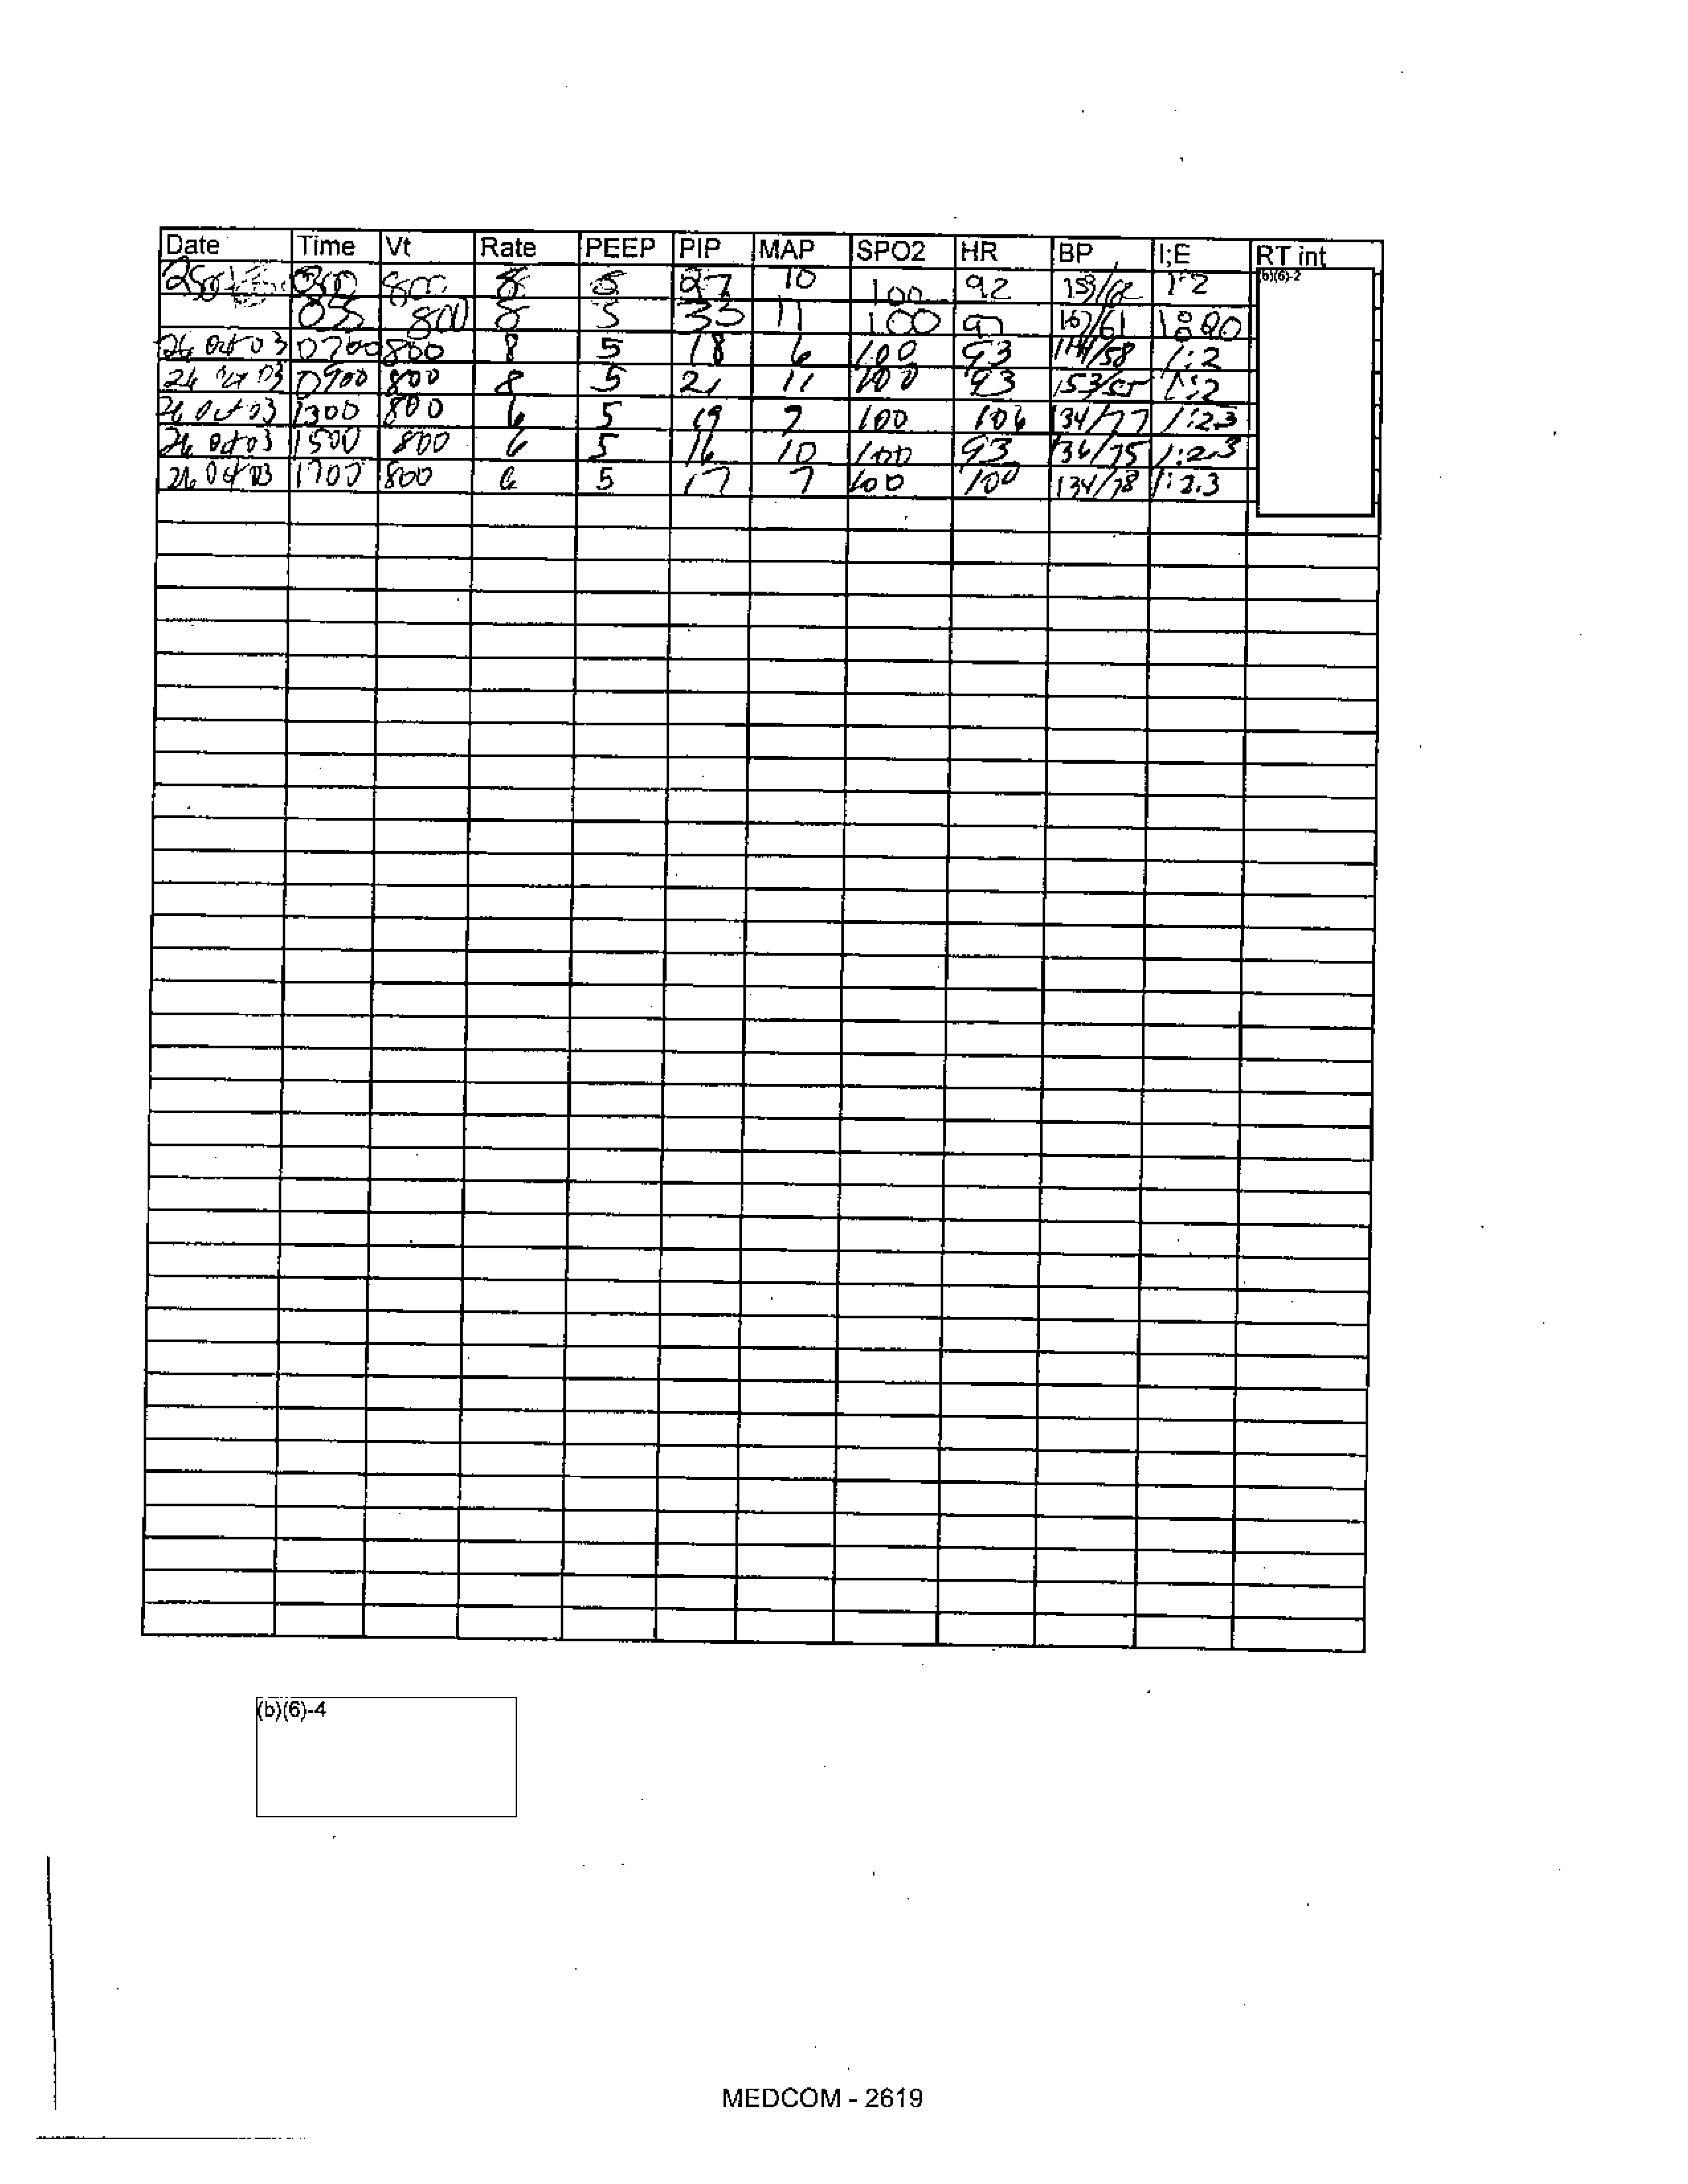 Date Time Vt Rate PEEP PIP MAP SPO2 HR BP I;E RT int
800 8 5 27 10 100 92 1:2 (b)(6)-2
800 8 5 33 11 100 167/61
26 Oct 03 0700 800 8 5 18 6 100 93 /58 1:2
26 Oct 03 0900 800 8 5 21 11 100 93 153/55 1:2
26 Oct 03 1300 800 6 5 19 7 100 106 134/77 1:2.3
26 Oct 03 1500 800 6 5 16 10 100 93 136/75 1:2.3
26 Oct 03 1700 800 6 5 17 7 100 100 134/78 1:2.3
(b)(6)-4
MEDCOM - 2619